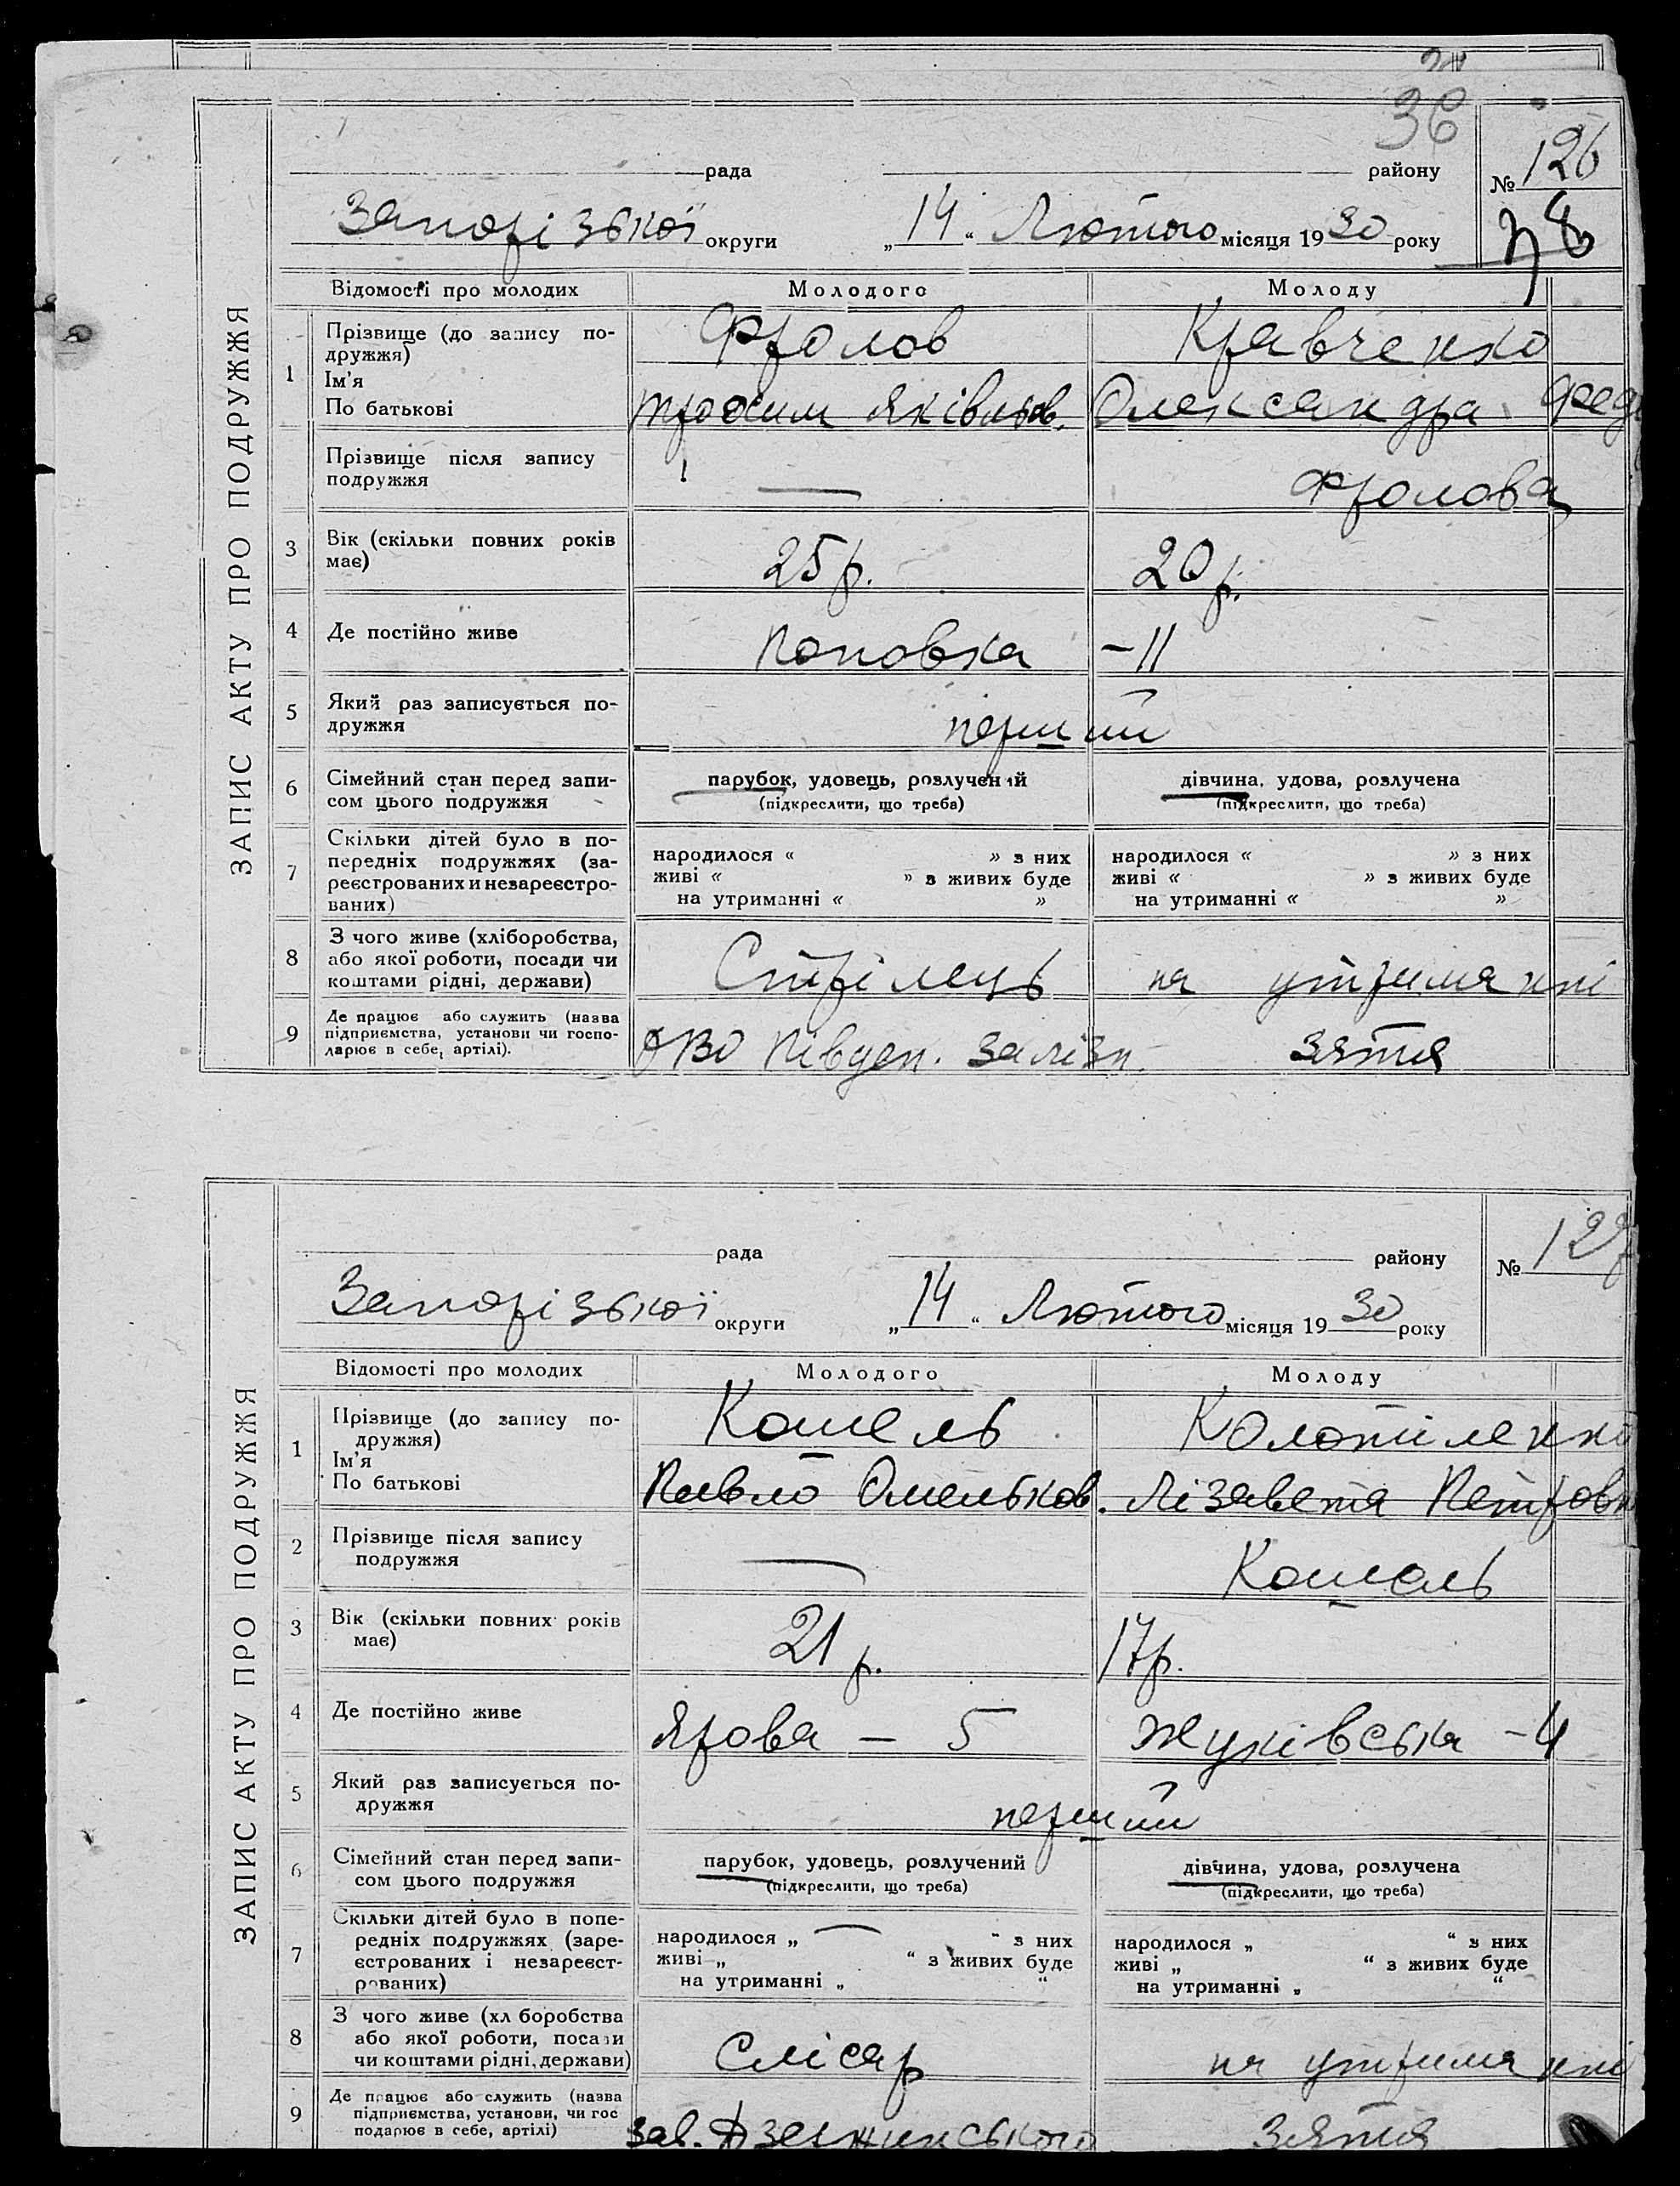 36
ЗАПИС АКТУ ПРО ПОДРУЖЖЯ
рада району № 126
Запорізької округи „14“ Лютого місяця 1930 року
38
Відомості про молодих Молодого Молоду
1 Прізвище (до запису по-
дружжя)
Ім'я
По батькові
Фролов Кравченко
Трохим Яківльов. Олександра Фед
Прізвище після запису
подружжя
— Фролова
3 Вік (скільки повних років
має)
25 р. 20 р.
4 Де постійно живе Поповка – 11
5 Який раз записується по-
дружжя
перший
6 Сімейний стан перед запи-
сом цього подружжя
парубок, удовець, розлучений дівчина, удова, розлучена
(підкреслити, що треба) (підкреслити, що треба)
7 Скільки дітей було в по-
передніх подружжях (за-
реєстрованих и незареєстро-
ваних)
народилося « » з них народилося « » з них
живі « » з живих буде живі « » з живих буде
на утриманні « » на утриманні « »
8 З чого живе (хліборобства,
або якої роботи, посади чи
коштами рідні, держави)
Стрілець на утриманні
9 Де працює або служить (назва
підприємства, установи чи госпо-
дарює в себе, артілі).
Півден. Залізн. зятя
ЗАПИС АКТУ ПРО ПОДРУЖЖЯ
рада району № 127
Запорізької округи „14“ Лютого місяця 1930 року
Відомості про молодих Молодого Молоду
1 Прізвище (до запису по-
дружжя)
Ім'я
По батькові
Кошель Колотіленко
Павло Омельков. Лізавета Петровн
2 Прізвище після запису
подружжя
— Кошель
3 Вік (скільки повних років
має)
21 р. 17 р.
4 Де постійно живе Ярова – 5 Жуківська – 4
5 Який раз записується по-
дружжя
перший
6 Сімейний стан перед запи-
сом цього подружжя
парубок, удовець, розлучений дівчина, удова, розлучена
(підкреслити, що треба) (підкреслити, що треба)
7 Скільки дітей було в попе-
редніх подружжях (заре-
єстрованих і незареєст-
рованих)
народилося „ — “ з них народилося „ “ з них
живі „ “ з живих буде живі „ “ з живих буде
на утриманні „ “ на утриманні „ “
8 З чого живе (хл боробства
або якої роботи, посади
чи коштами рідні, держави)
Слісар на утриманні
9 Де працює або служить (назва
підприємства, установи, чи гос
подарює в себе, артілі)
Зав. Дзержинського зятя